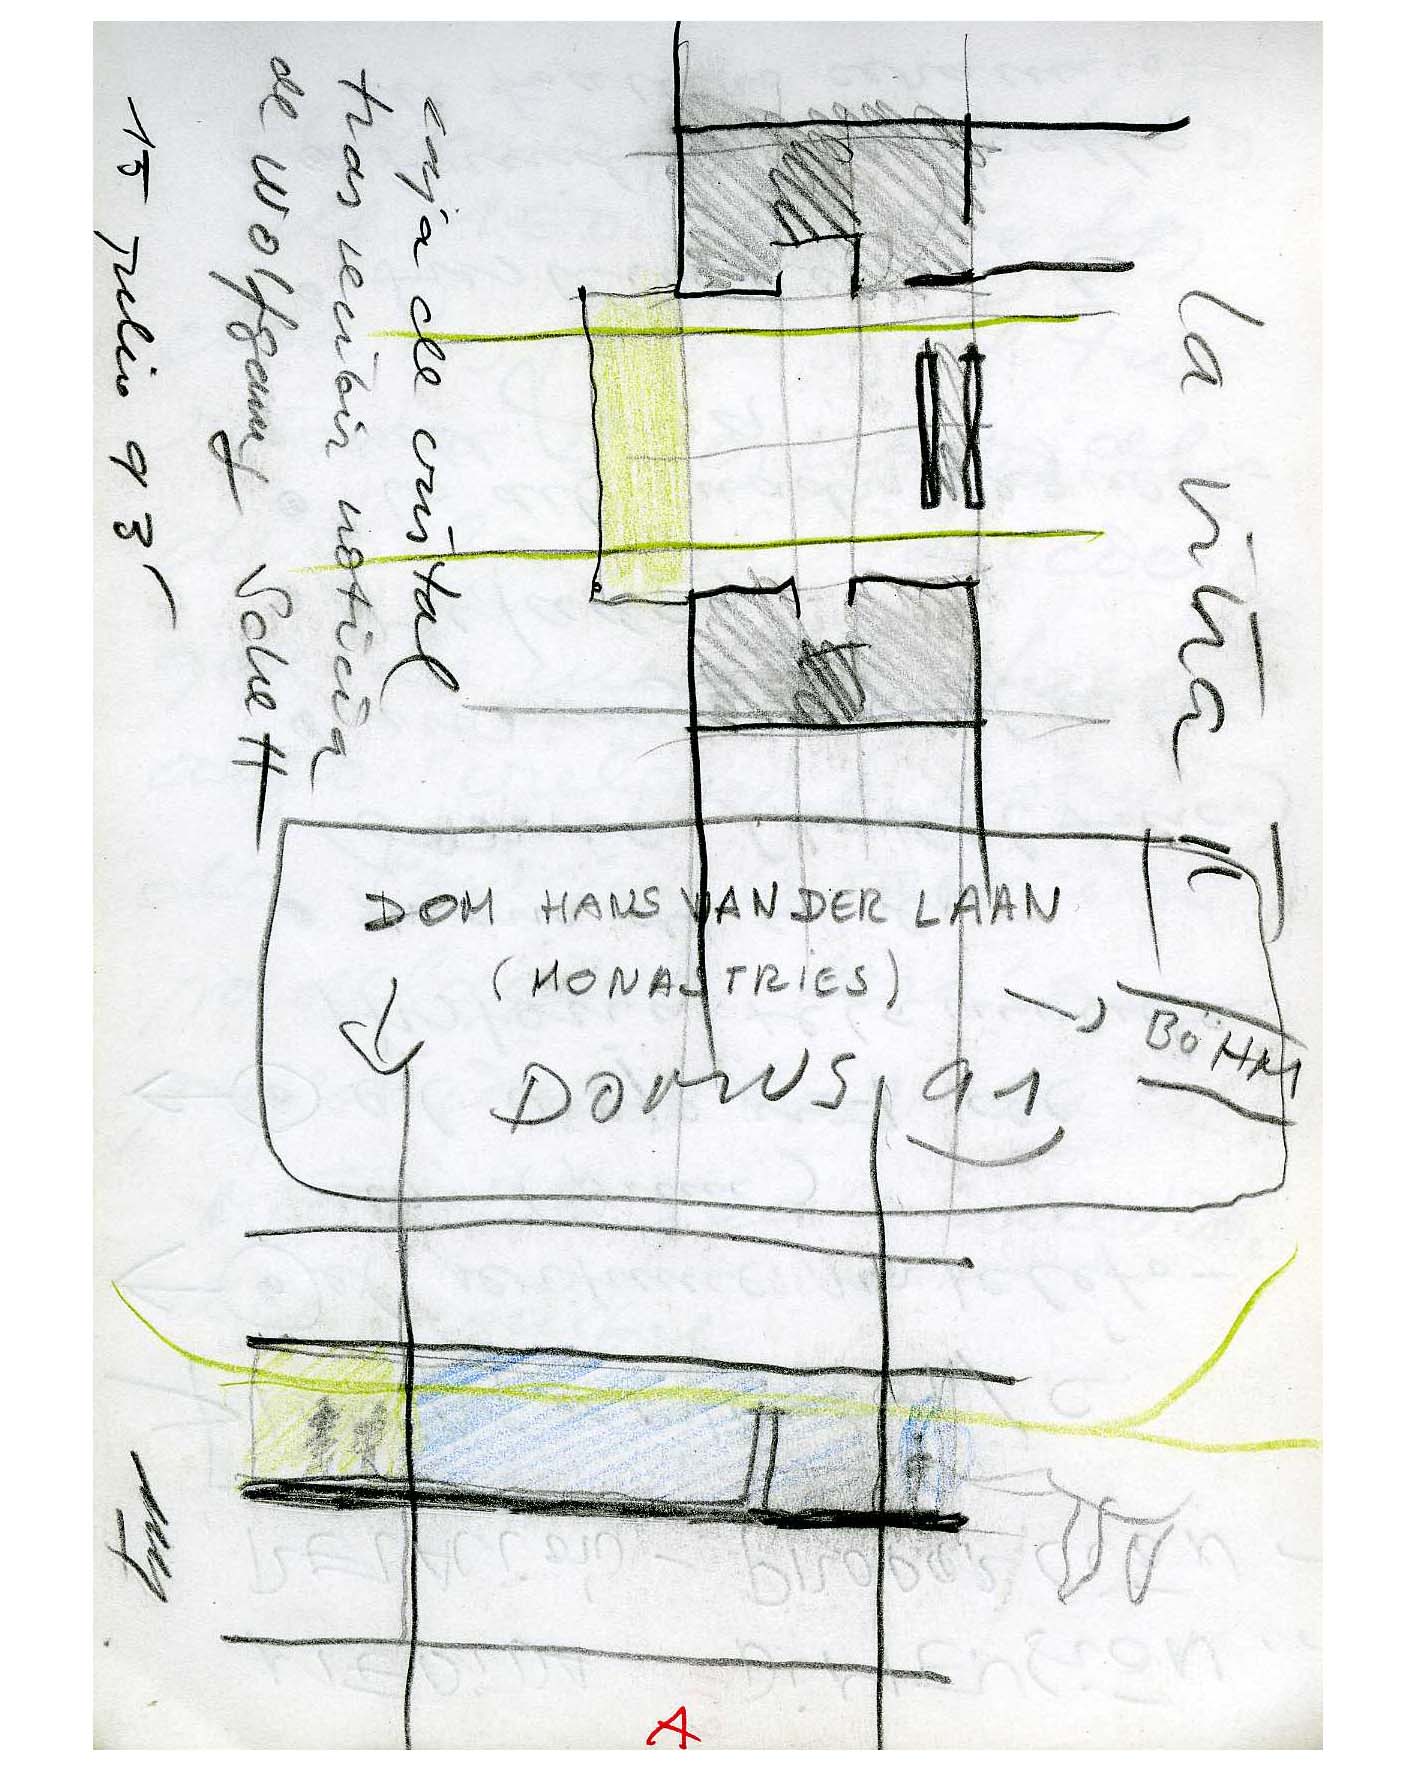 la viña
caja de cristal
tras recibir noticia
de Wolfgang Schett
15 Julio 93
DOM HANS VAN DER LAAN
(MONASTRIES)
DOMUS 91
BÖHM
A